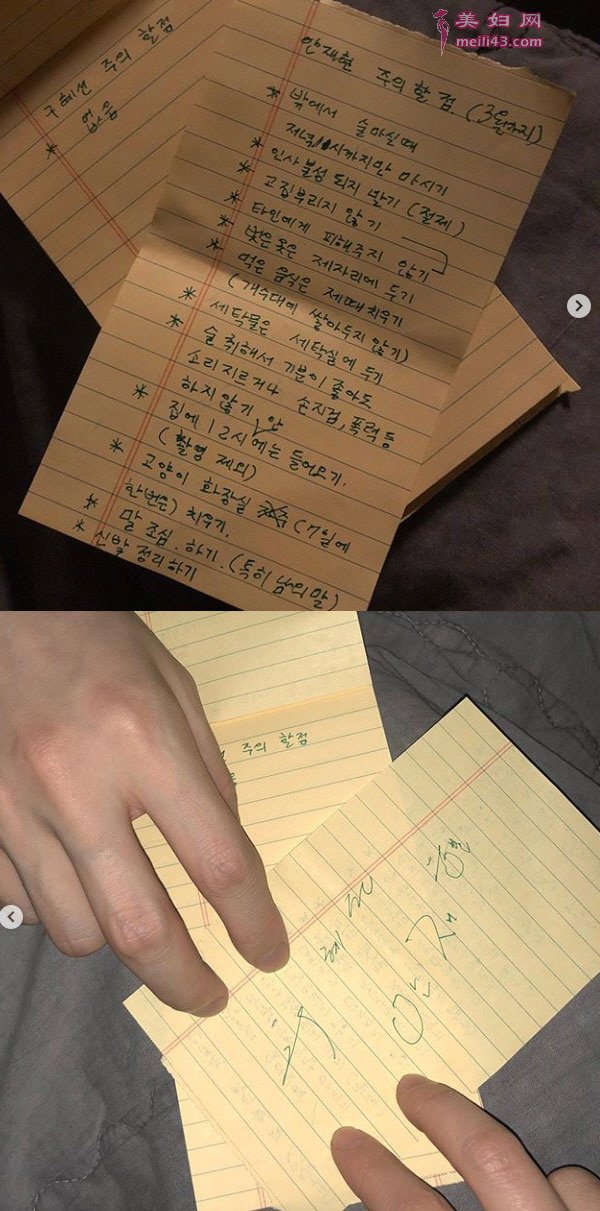 美妇网
meili43.com
구혜선 주의 할점
* 없음
안재현 주의 할 점. (3월까지)
* 밖에서 술마실때
저녁 11시까지만 마시기
* 인사불성 되지 말기 (절제)
* 고집부리지 않기
* 타인에게 피해주지 않기
* 벗은옷은 제자리에 두기
* 먹은 음식은 제때 치우기
(개수대에 쌓아두지 않기)
* 세탁물은 세탁실에 두기
* 술 취해서 기분이 좋아도
소리지르거나 손지검, 폭력 등
하지않기
* 집에 12시 안에는 들어오기.
(촬영 제외)
* 고양이 화장실 (7일에
한번은) 치우기.
* 말 조심. 하기. (특히 남의 말)
* 신발 정리하기
주의 할점
구혜선
안재현